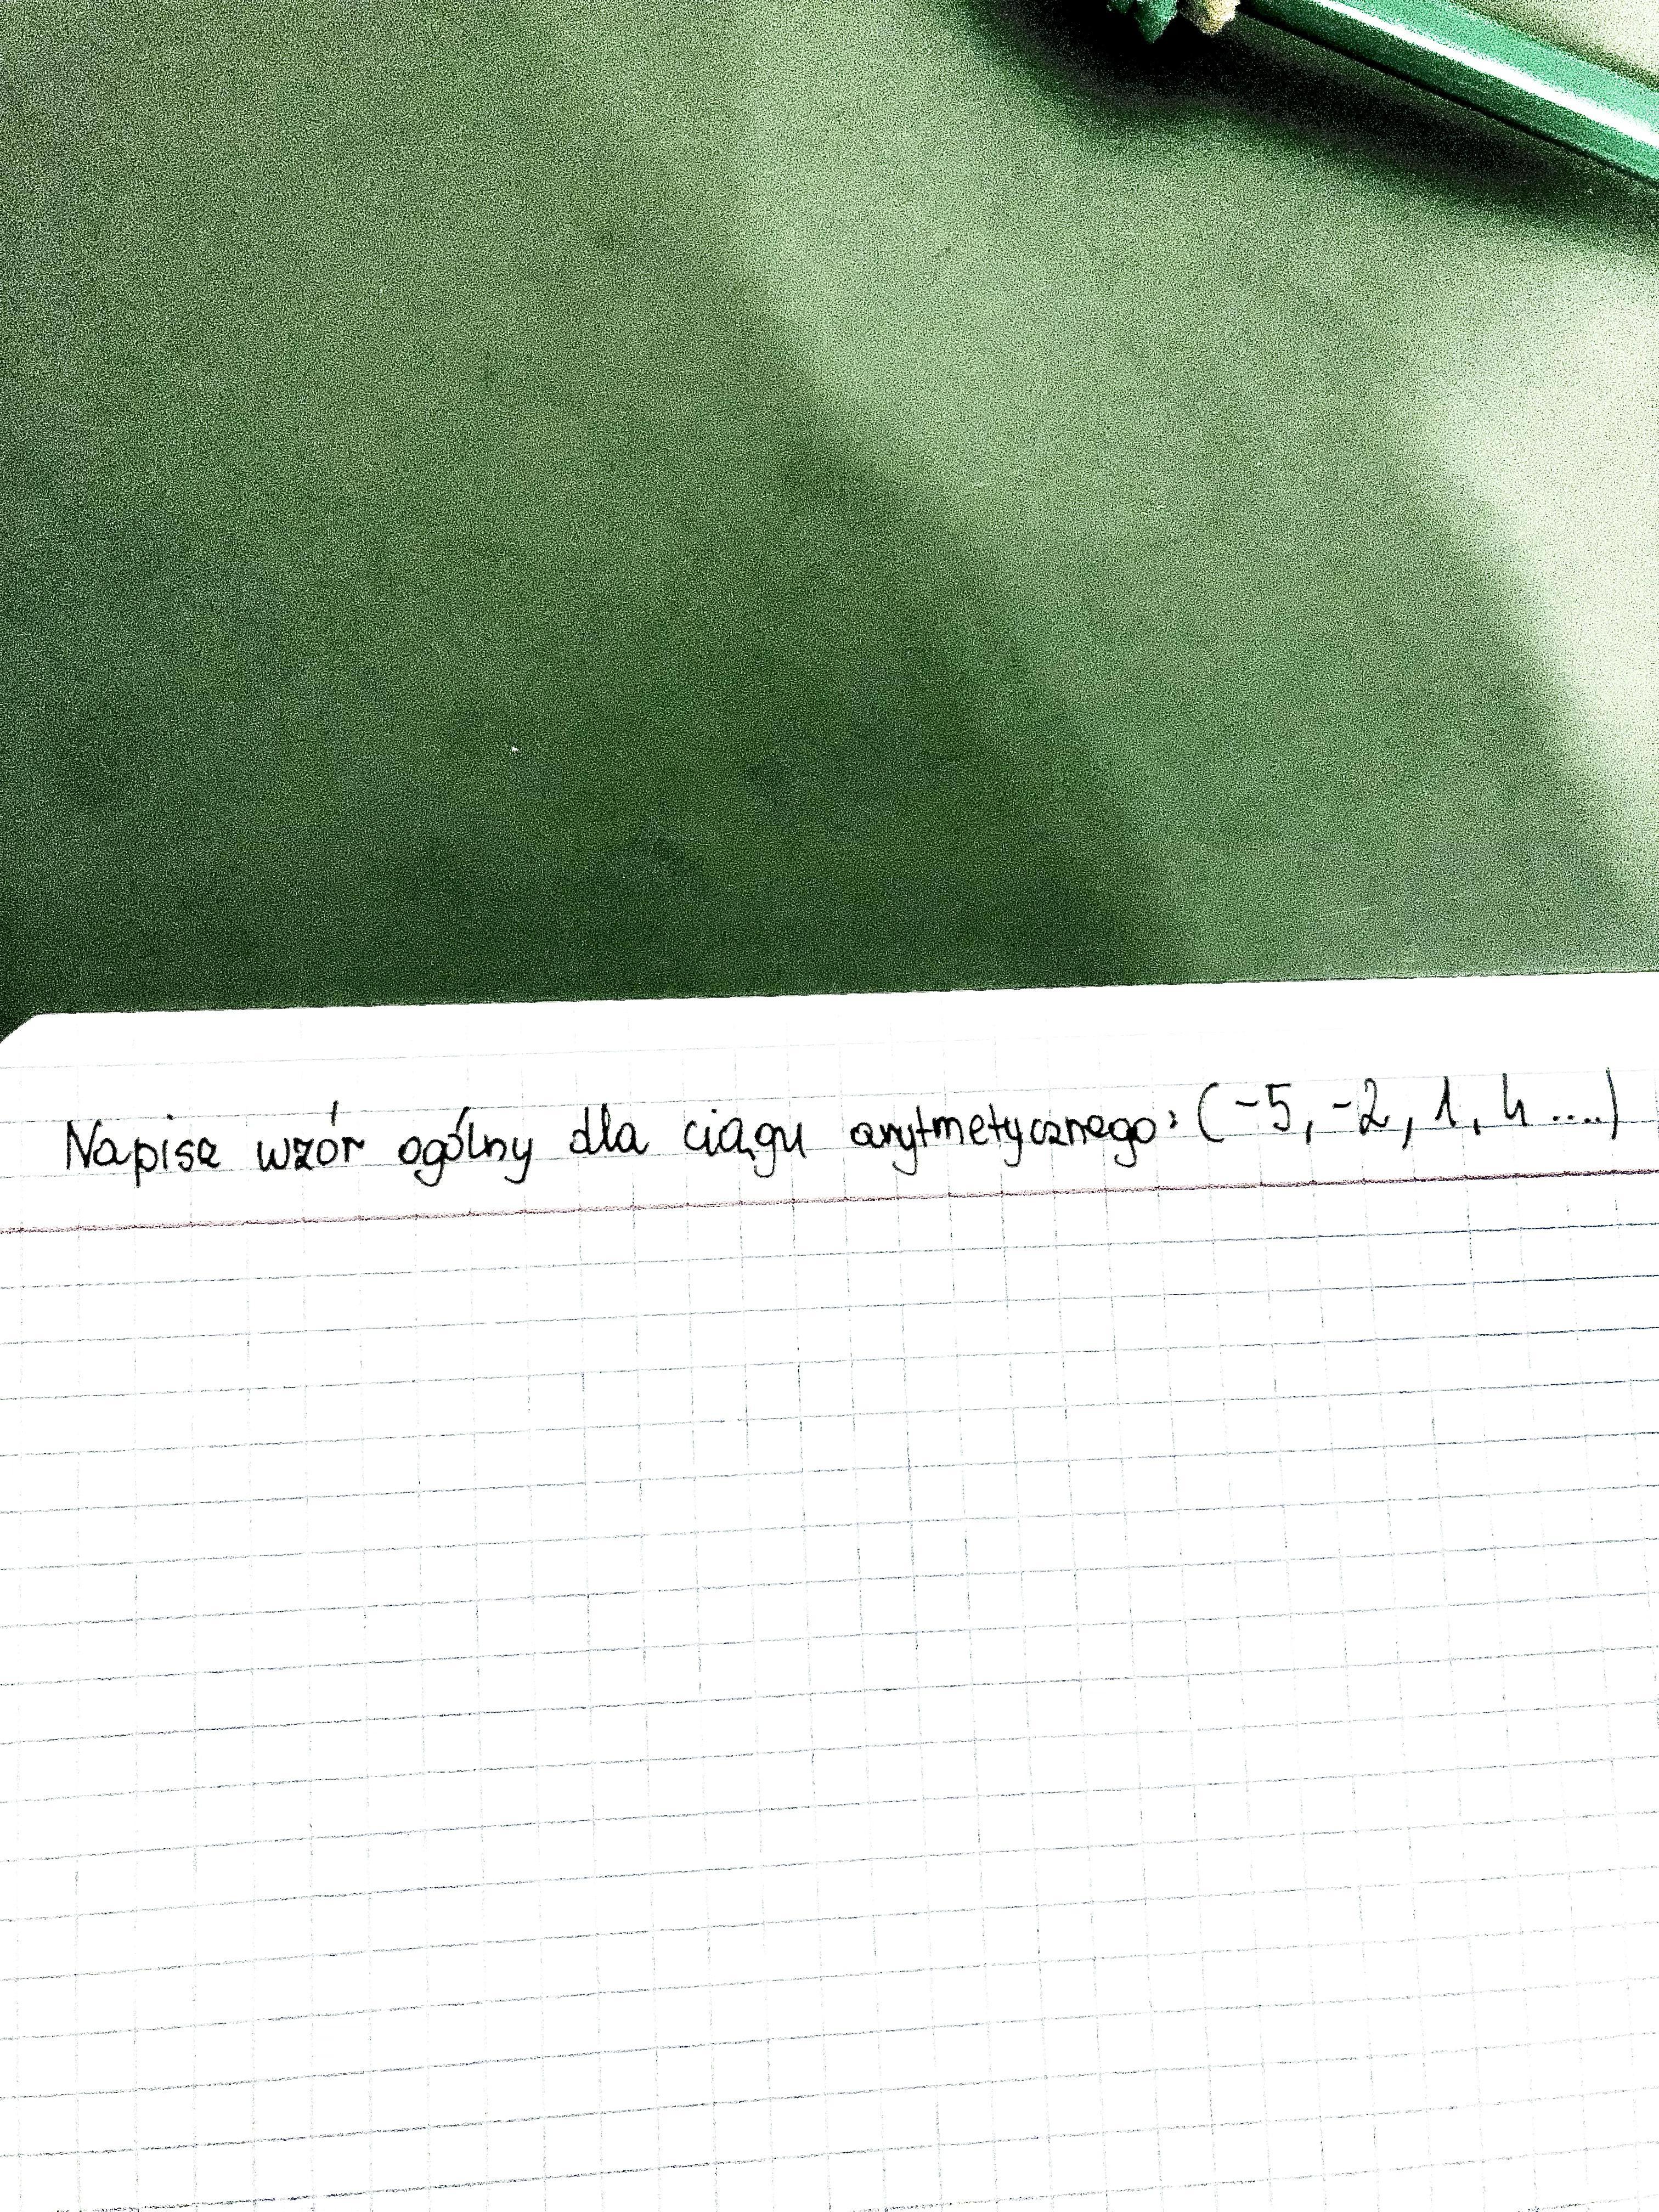 Napisz wzór ogólny dla ciągu arytmetycznego: (-5, -2, 1, 4 ....)